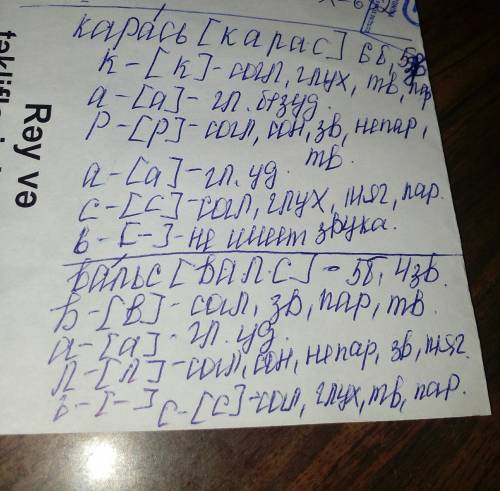 карась [карас] 6б, 5зв
к-[к]-согл, глух, тв, пар
а-[а]-гл. безуд.
р-[р]-согл, сон, зв, непар,
тв.
а-[а]-гл. уд.
с-[с]-согл, глух, мяг, пар.
ь-[-]-не имеет звука.
Вальс [вал'с]-5б, 4зв.
в-[в]-согл, зв, пар, тв.
а-[а]-гл. уд.
л-[л]-согл, сон, непар, зв, мяг.
ь-[-] с-[с]-согл, глух, тв, пар.
Rəy və